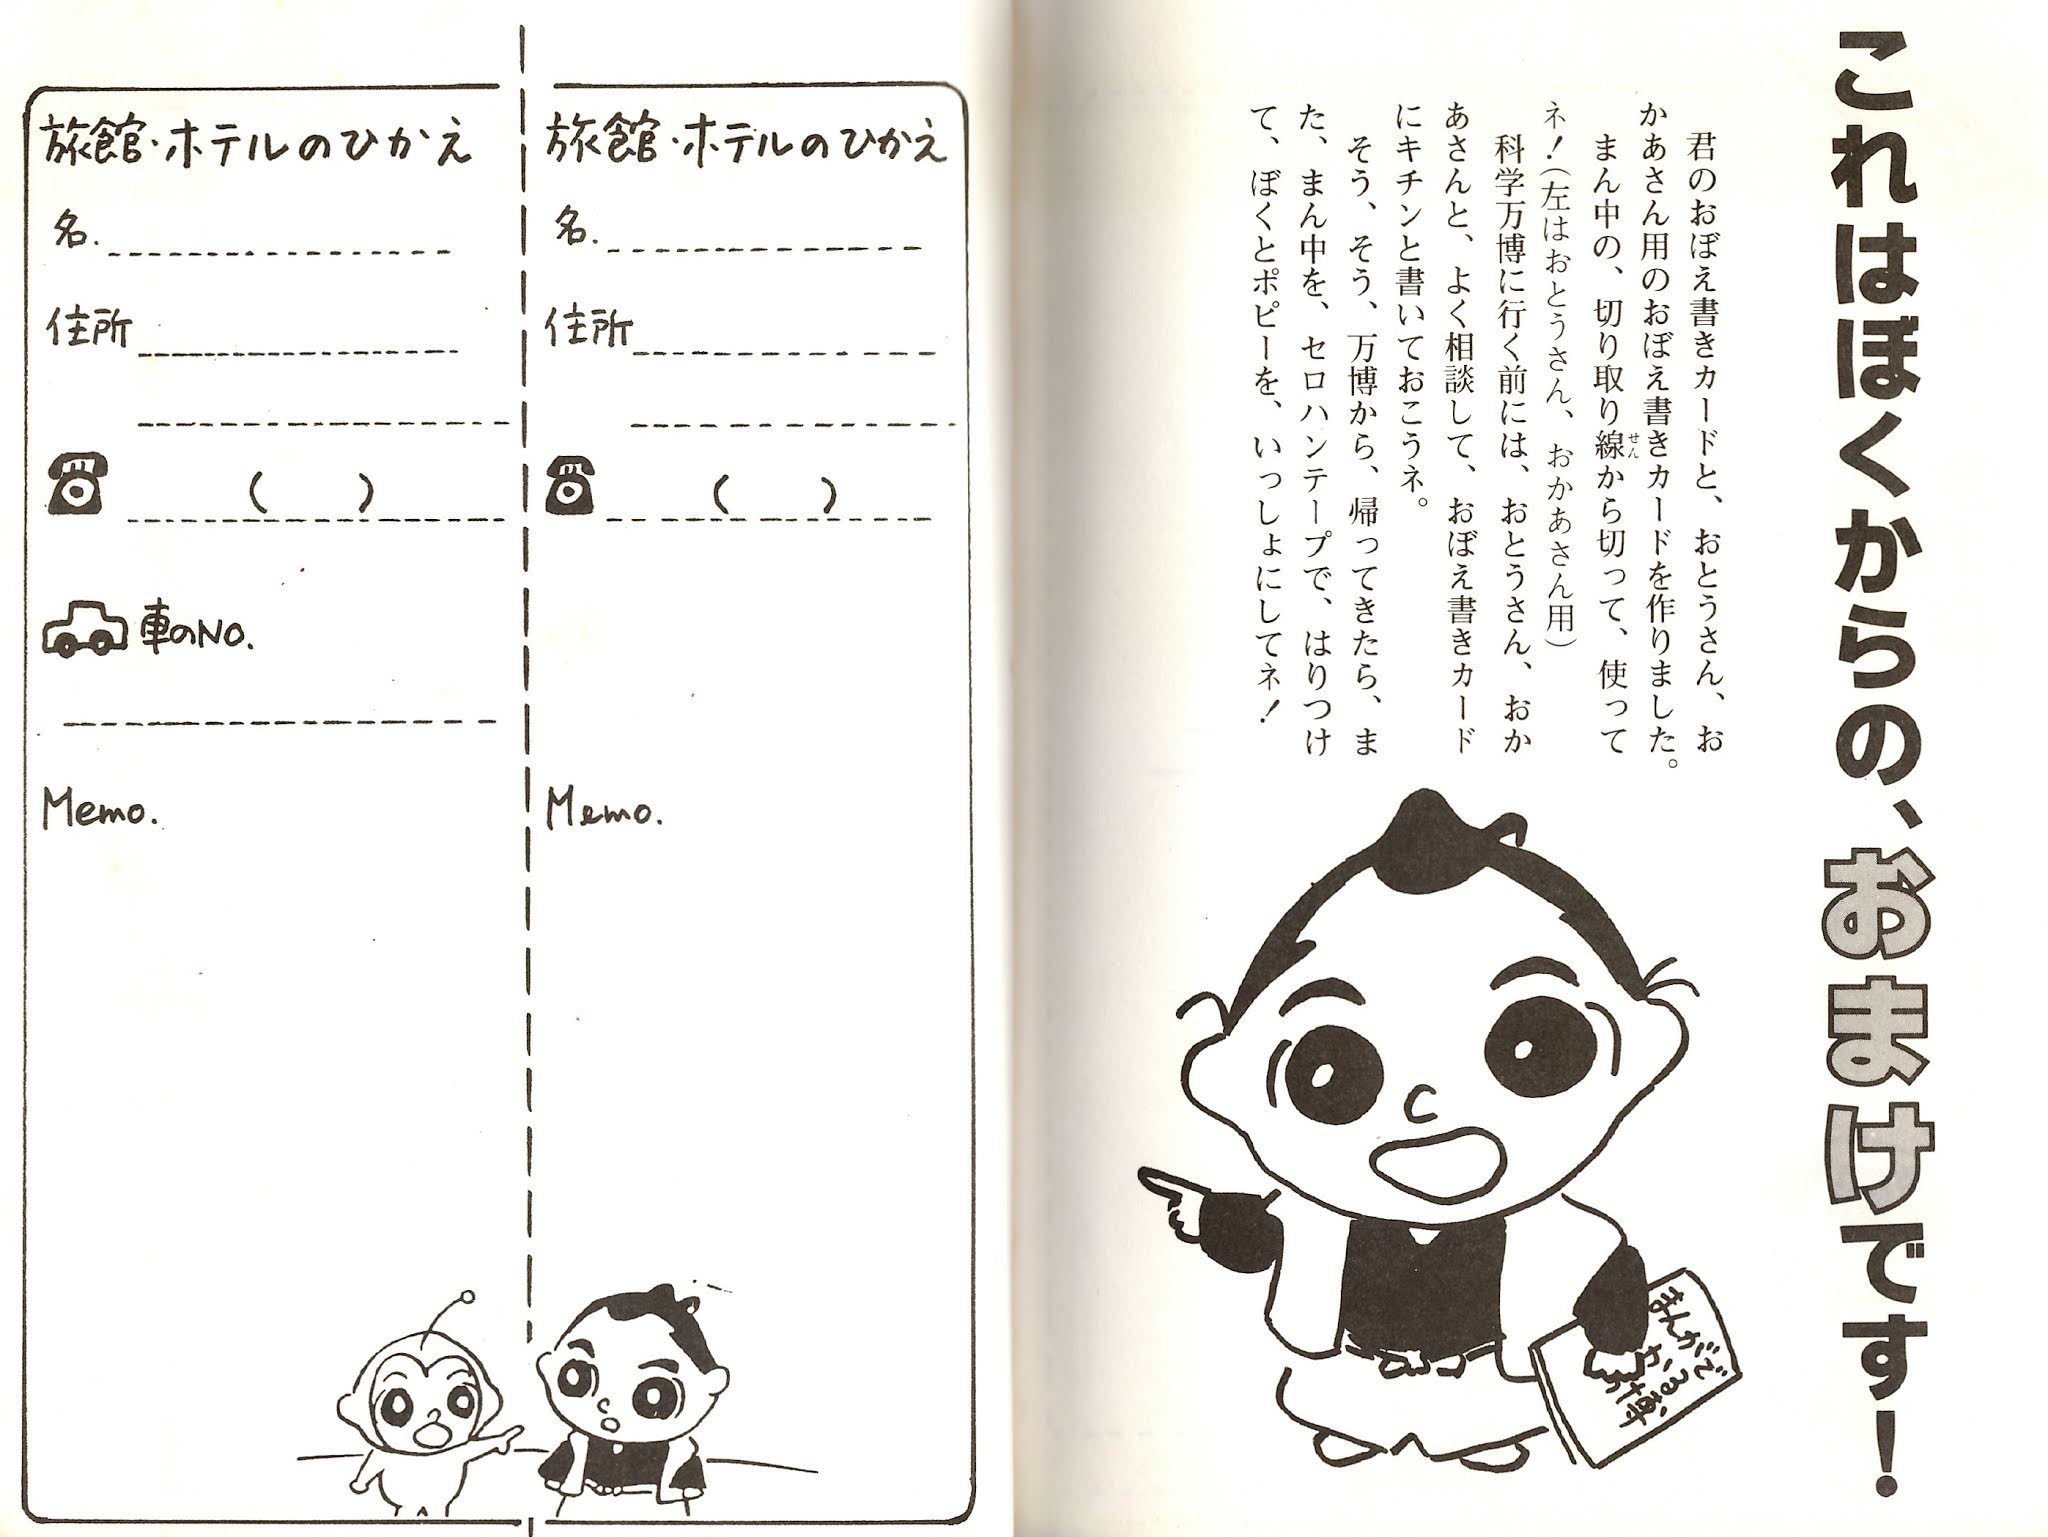 これはぼくからの、おまけです！
君のおぼえ書きカードと、おとうさん、お
かあさん用のおぼえ書きカードを作りました。
まん中の、切り取り線から切って、使って
せん
ネ！（左はおとうさん、おかあさん用）
科学万博に行く前には、おとうさん、おか
あさんと、よく相談して、おぼえ書きカード
にキチンと書いておこうネ。
そう、そう、万博から、帰ってきたら、ま
た、まん中を、セロハンテープで、はりつけ
て、ぼくとポピーを、いっしょにしてネ！
まんがで
わかる
万博
旅館・ホテルのひかえ
名.
住所
(　　)
Memo.
旅館・ホテルのひかえ
名.
住所
(　　)
車のNO.
Memo.